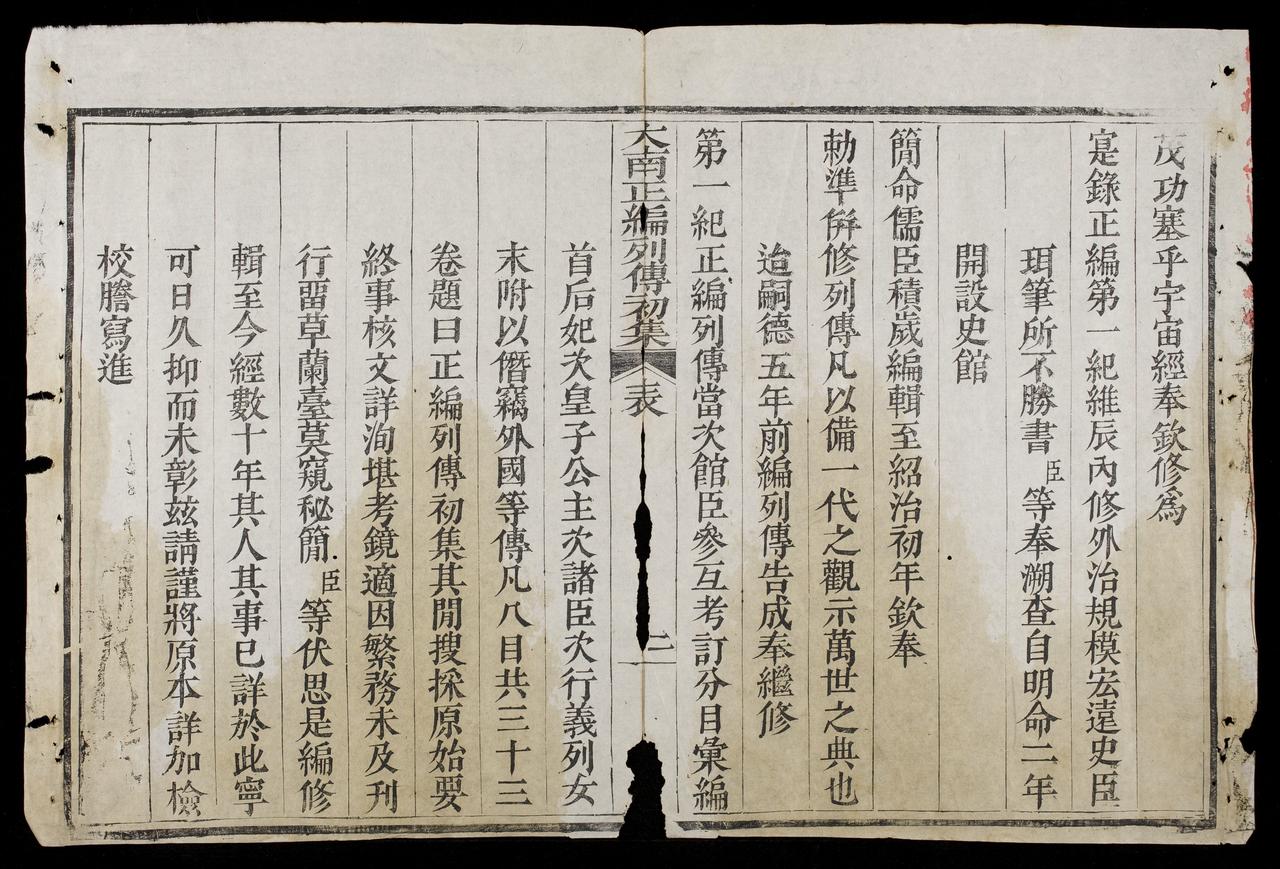 茂功塞乎宇宙經奉欽修爲
寔錄正編第一紀維辰內修外治規模宏遠史臣
珥筆所不勝書臣等奉溯查自明命二年
開設史館
簡命儒臣積歲編輯至紹治初年欽奉
勅準倂修列傳凡以備一代之觀示萬世之典也
迨嗣德五年前編列傳告成奉繼修
第一紀正編列傳當次館臣參互考訂分目彙編
大南正編列傳初集 表 二
首后妃次皇子公主次諸臣次行義列女
末附以僭竊外國等傳凡八目共三十三
卷題曰正編列傳初集其閒搜採原始要
終事核文詳洵堪考鏡適因繁務未及刊
行畱草蘭臺莫窺秘簡臣等伏思是編修
輯至今經數十年其人其事已詳於此寧
可日久抑而未彰玆請謹將原本詳加檢
校謄寫進